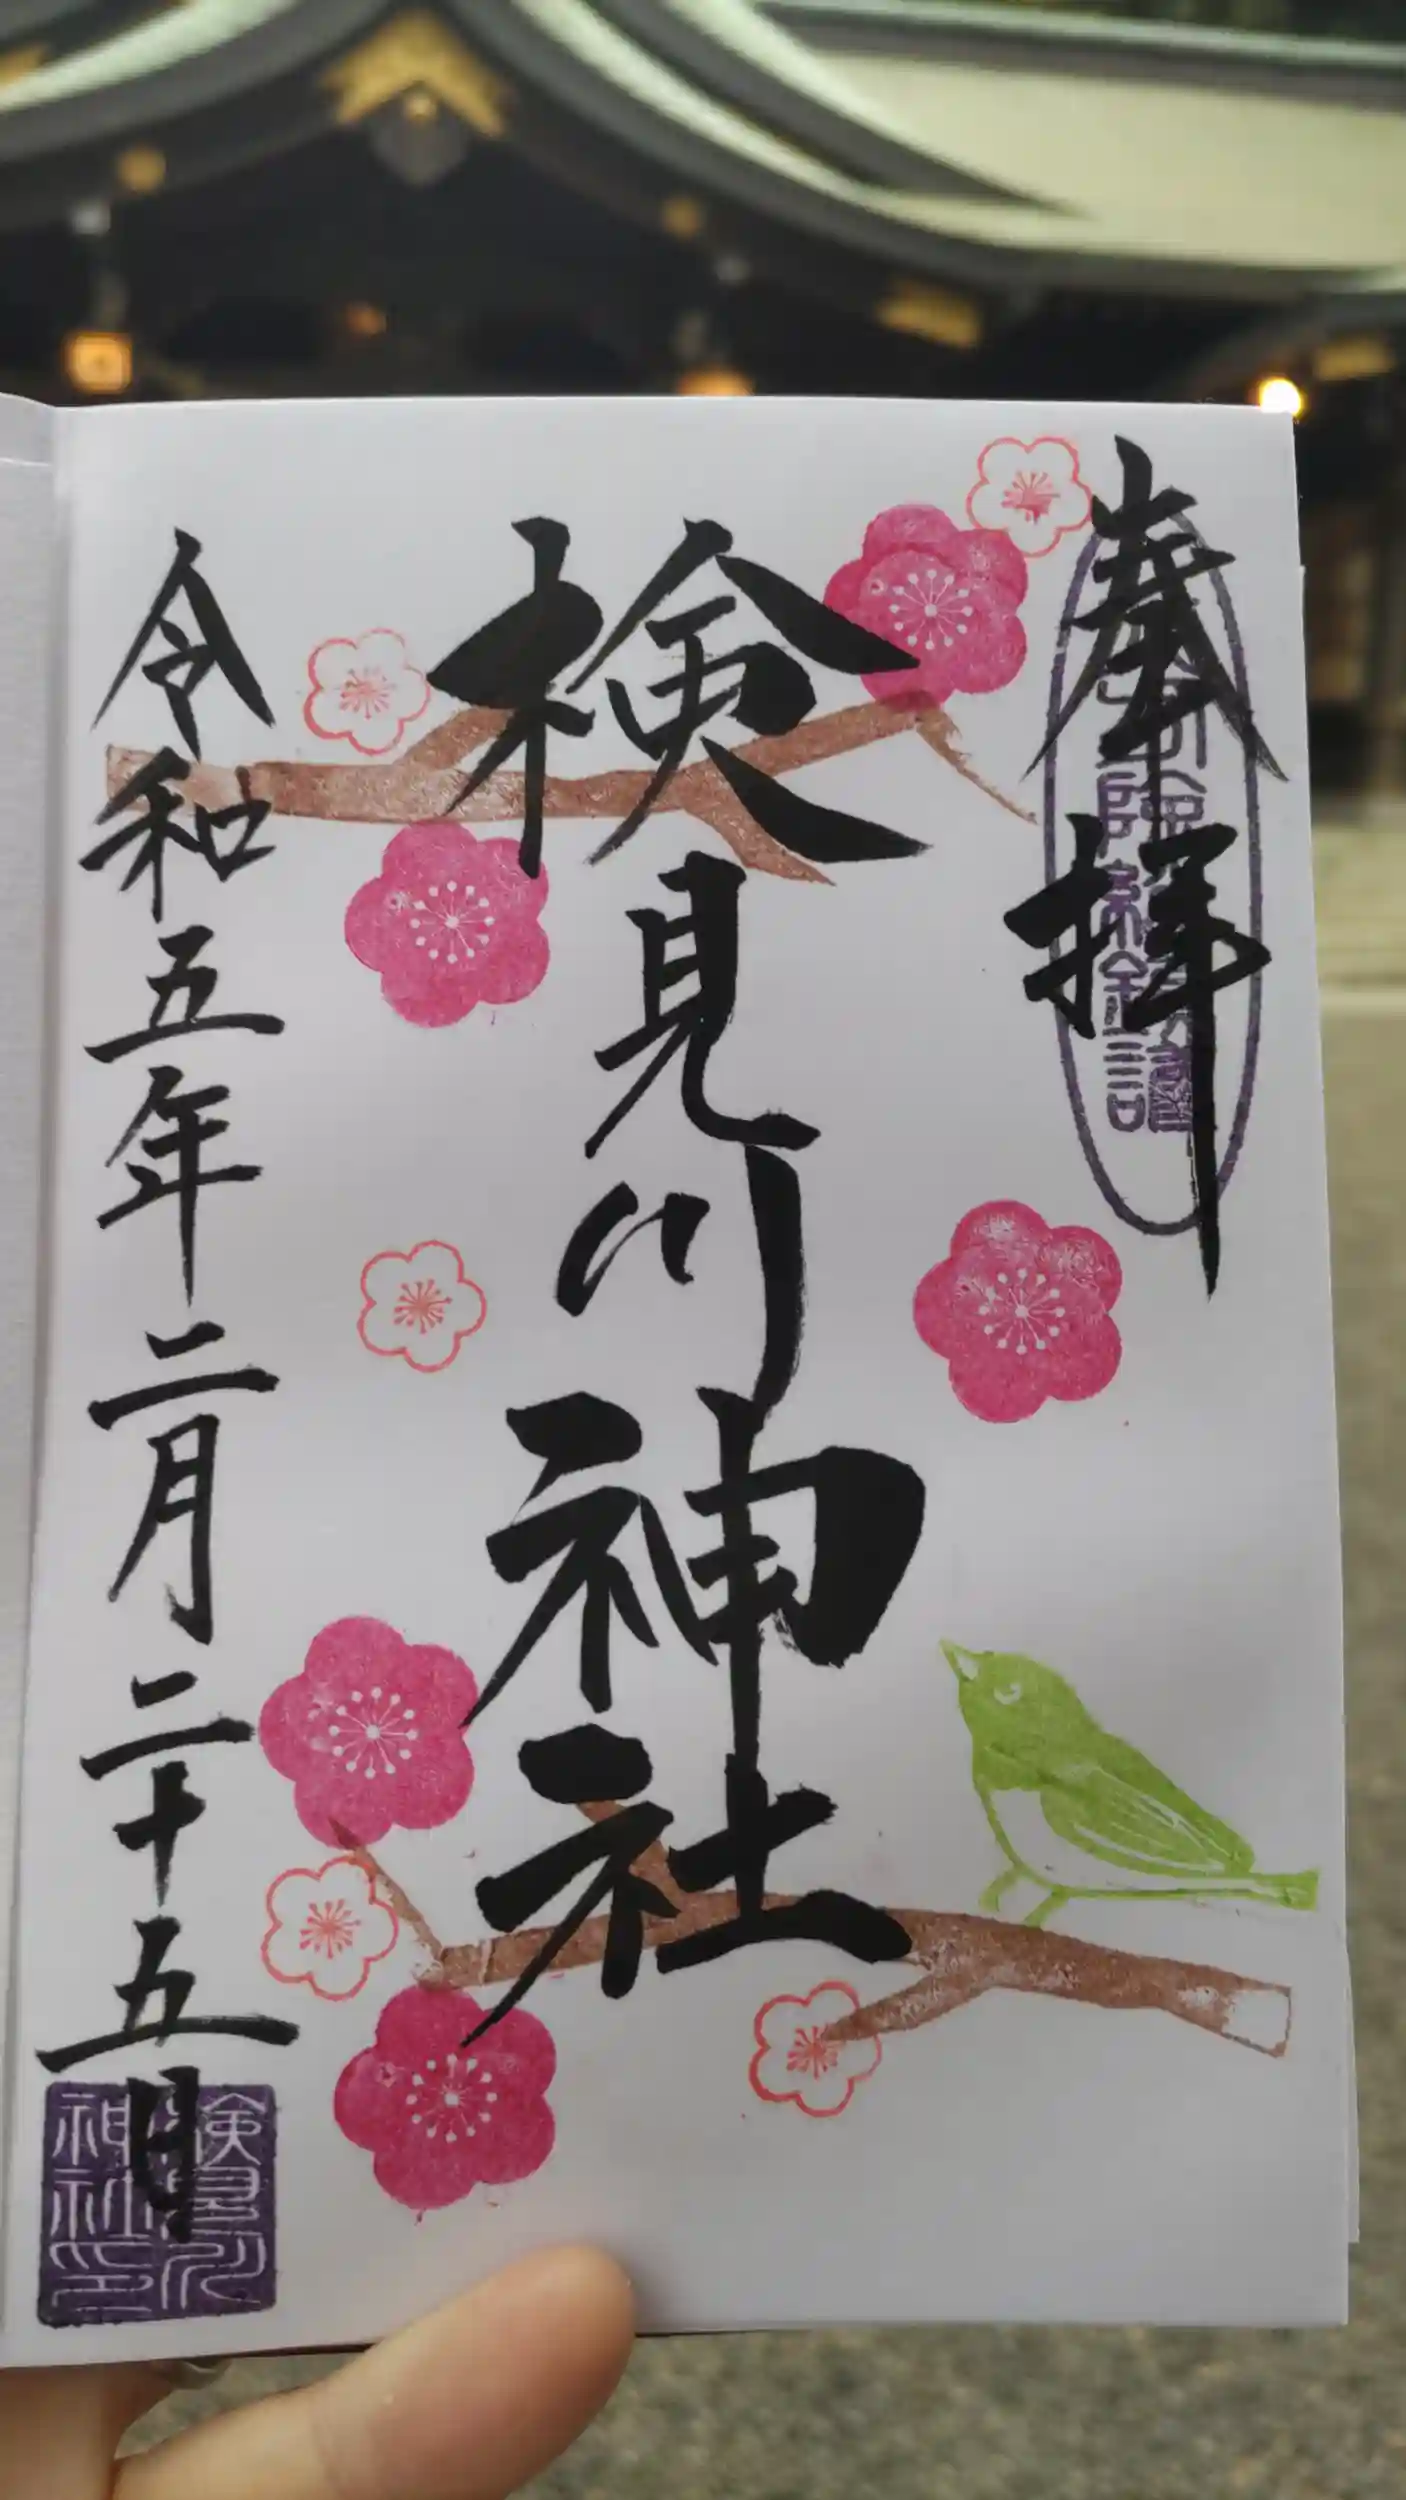 奉拝
検見川神社
令和五年二月二十五日
検見川
神社印